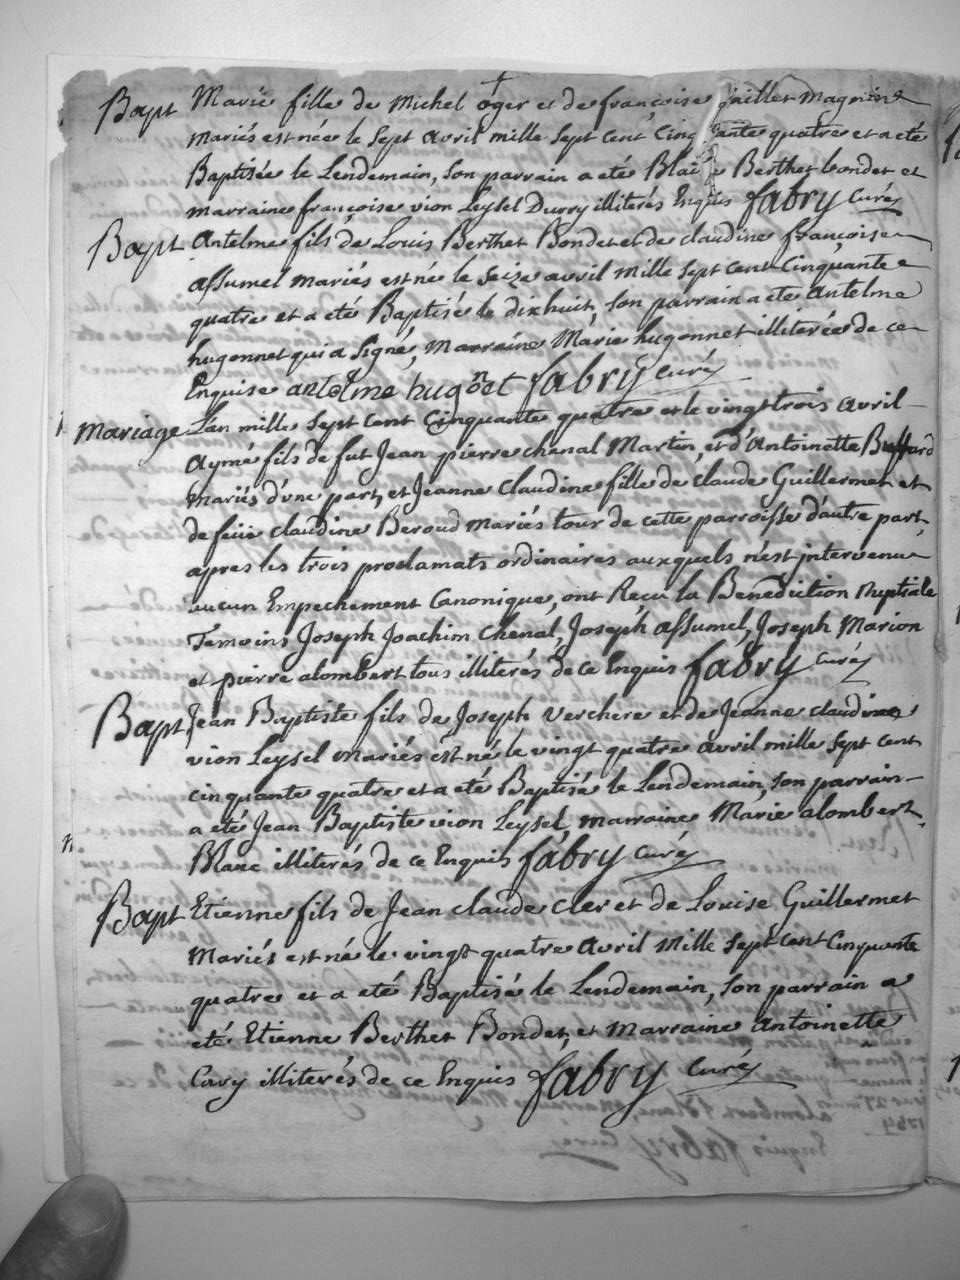 Bapt Marie fille de Michel Oger et de françoise Jaillet Magnin
Mariés est née le Sept avril mille Sept cent Cinquante quatre et a été
Baptisée le Lendemain, Son parrain a été Blaise Berthet bondet et
marraine françoise vion Leysel Durry illiterés Enquis fabry Curé
Bapt Antelme fils de Louis Berthet Bondet et de claudine françoise
assumel mariés est né le Seize avril mille Sept cent Cinquante
quatre et a été Baptisé le dixhuit, Son parrain a ete Antelme
hugonnet qui a Signé, Marraine Marie hugonnet illiterée de ce
Enquise antelme hugoñet fabry curé
Mariage Lan mille Sept Cent Cinquante quatre et le vingt trois avril
Aymé fils de fut Jean pierre chenal Martin, et d'Antoinette Buffard
mariés d'une part, et Jeanne Claudine fille de claude Guillermet et
de feüe claudine Beroud mariés tour de cette parroisse d'autre part,
apres les trois proclamats ordinaires auxquels n'est intervenu
aucun Empechement Canonique, ont Recu la Benediction Nuptiale
Temoins Joseph Joachim Chenal, Joseph assumel, Joseph Marion
et pierre alombert tous illiterés de ce Enquis fabry curé
Bapt Jean Baptiste fils de Joseph Verchere et de Jeanne claudine
vion Leysel mariés est né le vingt quatre avril mille Sept cent
cinquante quatre et a été Baptisé le Lendemain, Son parrain
a été Jean Baptiste vion Leysel, marraine Marie alombert
Blanc illiterés de ce Enquis fabry Curé
Bapt Etienne fils de Jean claude Cler et de Louise Guillermet
Mariés est né le vingt quatre avril Mille Sept cent Cinquante
quatre et a été Baptisé le Lendemain, Son parrain a
été Etienne Berthet Bondet, et Marraine antoinette
Cavy illiterés de ce Enquis fabry Curé